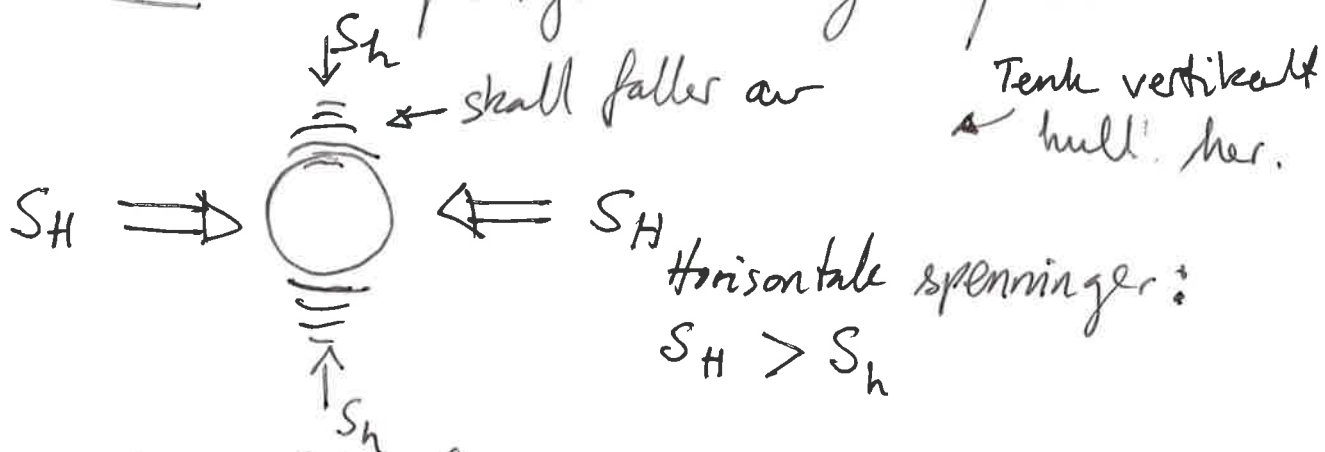 Sh
skall faller av
Tenk vertikalt
hull her.
SH
SH
Horisontale spenninger:
SH > Sh
Sh